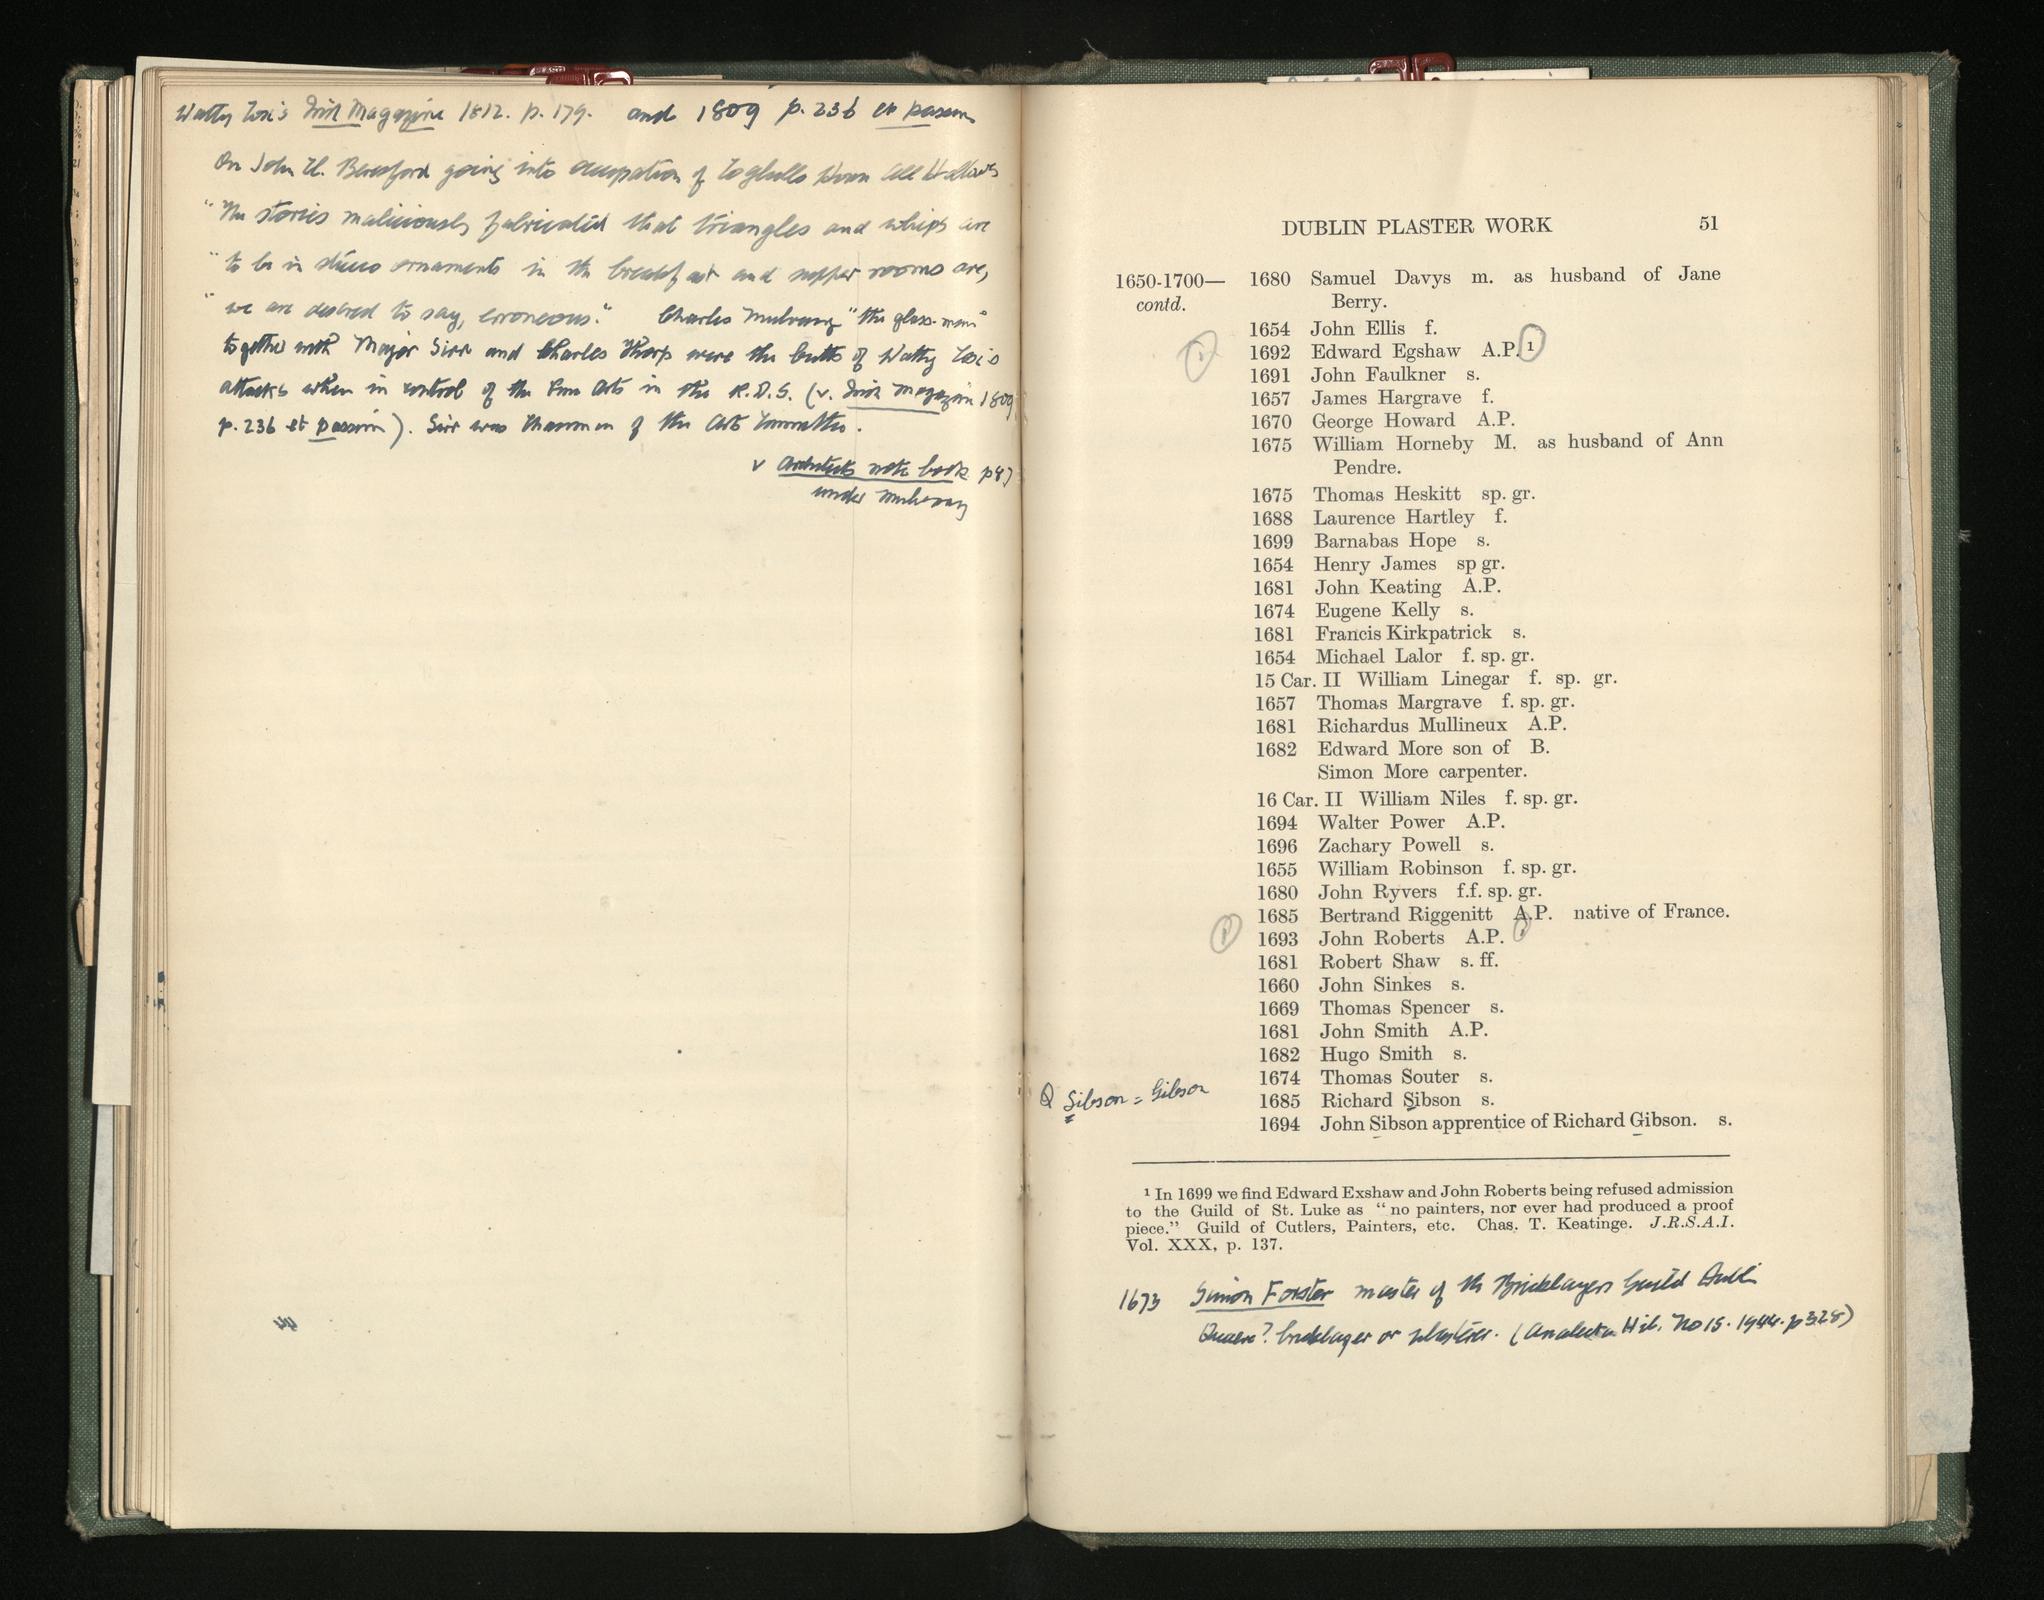 Watty Cox's Irish Magazine 1812. p. 179. and 1809 p. 236 et passim
On John C. Beresford going into occupation of Coghills House All Hallows
"The stories maliciously fabricated that triangles and whips are
"to be in stucco ornaments in the breakfast and supper rooms are,
"we are desired to say, erroneous." Charles Mulvany "the glass-man"
together with Major Sirr and Charles Thorp were the butts of Watty Cox's
attacks when in control of the Fine Arts in the R.D.S. (v. Irish Magazine 1809
p. 236 et passim). Sirr was Chairman of the Art Committee.
v Architects note book p87
under Mulvany
DUBLIN PLASTER WORK 51
1650-1700— 1680 Samuel Davys m. as husband of Jane
contd. Berry.
1654 John Ellis f.
1692 Edward Egshaw A.P. 1
1691 John Faulkner s.
1657 James Hargrave f.
1670 George Howard A.P.
1675 William Horneby M. as husband of Ann
Pendre.
1675 Thomas Heskitt sp. gr.
1688 Laurence Hartley f.
1699 Barnabas Hope s.
1654 Henry James sp gr.
1681 John Keating A.P.
1674 Eugene Kelly s.
1681 Francis Kirkpatrick s.
1654 Michael Lalor f. sp. gr.
15 Car. II William Linegar f. sp. gr.
1657 Thomas Margrave f. sp. gr.
1681 Richardus Mullineux A.P.
1682 Edward More son of B.
Simon More carpenter.
16 Car. II William Niles f. sp. gr.
1694 Walter Power A.P.
1696 Zachary Powell s.
1655 William Robinson f. sp. gr.
1680 John Ryvers f.f. sp. gr.
1685 Bertrand Riggenitt A.P. native of France.
1693 John Roberts A.P. 1
1681 Robert Shaw s. ff.
1660 John Sinkes s.
1669 Thomas Spencer s.
1681 John Smith A.P.
1682 Hugo Smith s.
1674 Thomas Souter s.
Q Sibson = Gibson
1685 Richard Sibson s.
1694 John Sibson apprentice of Richard Gibson. s.
1 In 1699 we find Edward Exshaw and John Roberts being refused admission
to the Guild of St. Luke as "no painters, nor ever had produced a proof
piece." Guild of Cutlers, Painters, etc. Chas. T. Keatinge. J.R.S.A.I.
Vol. XXX, p. 137.
1673 Simon Forster master of the Bricklayers Guild Dublin
Quaere? bricklayer or plasterer. (Analecta Hib. No 15. 1944. p 328)